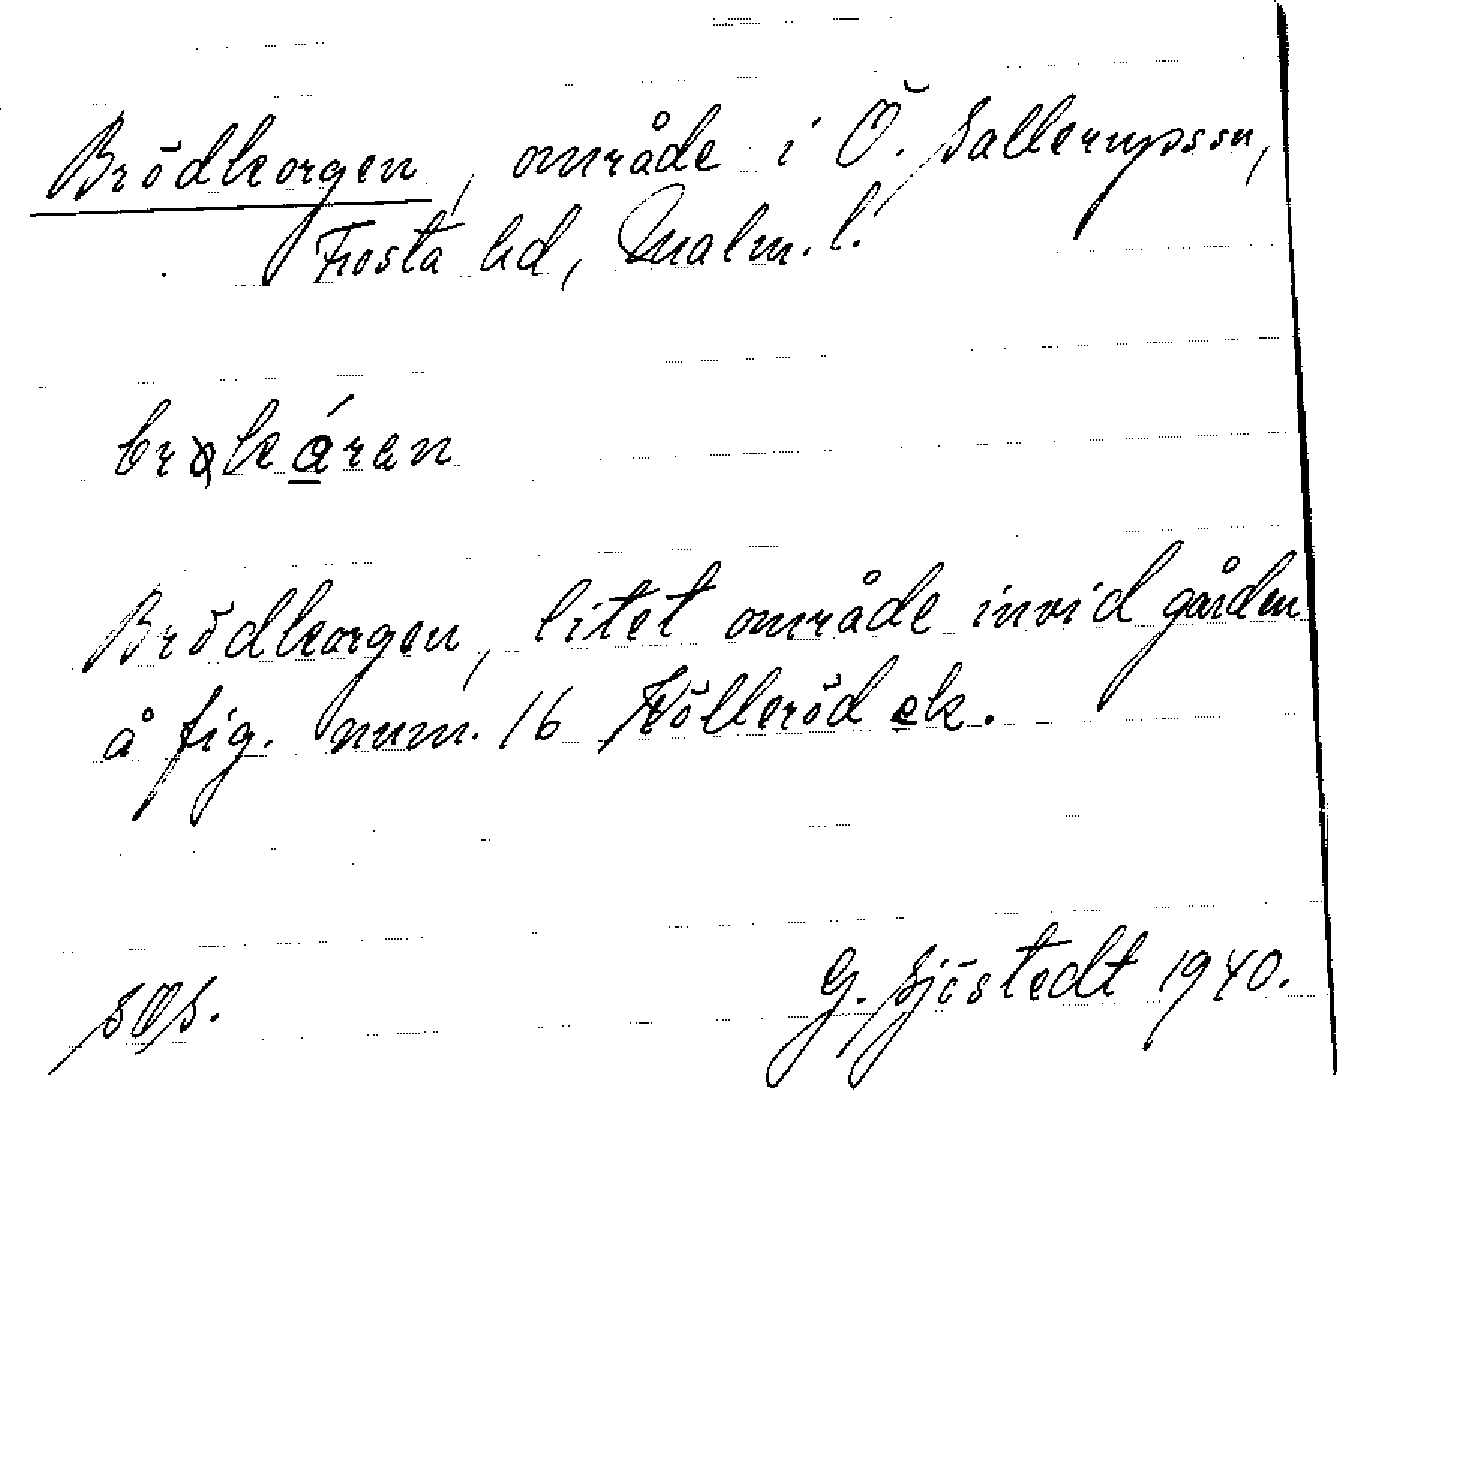 Brödkorgen, område i Ö. Sallerups sn,
Frosta hd, Malm. l.
Brödkorgen, litet område invid gården
å fig. num. 16 Kölleröd ek.
G. Sjöstedt 1940.